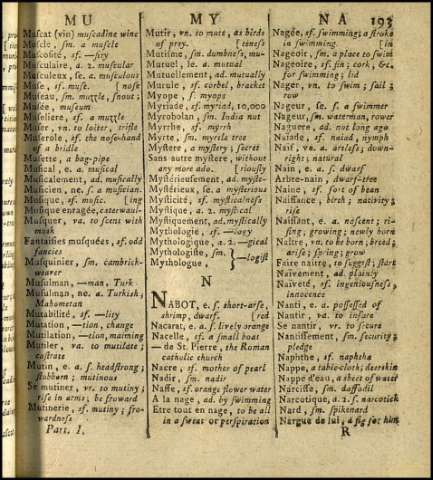 MU
MY
NA 193
Muscat (vin) muscadine wine
Muscle, sm. a muscle
Muscosité, sf. —sity
Musculaire, a. 2. muscular
Musculeux, se, a. musculous
Muse, sf. muse. nose
Museau, sm. muzzle, snout;
Musée, museum
Museliere, sf. a muzzle
Muser, vn. to loiter, trifle
Muserole, sf. the nose-band
of a bridle
Musette, a bag-pipe
Musical, e. a. musical
Musicalement, ad. musically
Musicien, ne. s. a musician.
Musique, sf. music. [ing
Musique enragée, caterwaul-
Musquer, va. to scent with
musk
Fantaisies musquées, sf. odd
fancies
Musquinier, sm. cambrick-
weaver
Musulman, —man, Turk
Musulman, ne. a. Turkish,
Mahometan
Mutabilité, sf. —ity
Mutation, —tion, change
Mutilation, —tion, maiming
Mutiler, va. to mutilate;
castrate
Mutin, e. a. s. headstrong;
stubborn; mutinous
Se mutiner, vr. to mutiny;
rise in arms; be froward
Mutinerie, sf. mutiny; fro-
wardness
Part. I.
Mutir, vn. to mute, as birds
of prey. [teness
Mutisme, sm. dumbness, mu-
Mutuel, le. a. mutual
Mutuellement, ad. mutually
Mutule, sf. corbel, bracket
Myope, s. myops
Myriade, sf. myriad, 10,000
Myrobolan, sm. India nut
Myrrhe, sf. myrrh
Myrte, sm. myrtle tree
Mystere, a mystery; secret
Sans autre mystere, without
any more ado. [riously
Mystérieusement, ad. myste-
Mystérieux, se. a. mysterious
Mysticité, sf. mysticalness
Mystique, a. 2. mystical
Mystiquement, ad. mystically
Mythologie, sf. —logy
Mythologique, a. 2. —gical
Mythologiste, sm. } —logist
Mythologue,
N
NABOT, e. s. short-arse,
shrimp, dwarf. [red
Nacarat, e. a. s. lively orange
Nacelle, sf. a small boat
— de St. Pierre, the Roman
catholic church
Nacre, sf. mother of pearl
Nadir, sm. nadir
Naffe, sf. orange flower water
A la nage, ad. by swimming
Etre tout en nage, to be all
in a sweat or perspiration
Nagée, sf. swimming; a stroke
in swimming [in
Nageoir, sm. a place to swim
Nageoire, sf. fin; cork, &c.
for swimming; lid
Nager, vn. to swim; sail;
row
Nageur, se. s. a swimmer
Nageur, sm. waterman, rower
Naguere, ad. not long ago
Naïade, sf. naiad, nymph
Naïf, ve. a. artless; down-
right; natural
Nain, e. a. s. dwarf
Arbre-nain, dwarf-tree
Naine, sf. sort of bean
Naissance, birth; nativity;
rise
Naissant, e. a. nascent; ri-
sing, growing; newly born
Naître, vn. to be born, breed;
arise; spring; grow
Faire naître, to suggest; start
Naïvement, ad. plainly
Naïveté, sf. ingenuousness;
innocence
Nanti, e. a. possessed of
Nantir, va. to insure
Se nantir, vr. to secure
Nantissement, sm. security;
pledge
Naphthe, sf. naphtha
Nappe, a table-cloth; deerskin
Nappe d'eau, a sheet of water
Narcisse, sm. daffodil
Narcotique, a. 2. s. narcotick
Nard, sm. spikenard
Nargue de lui, a fig for him
R